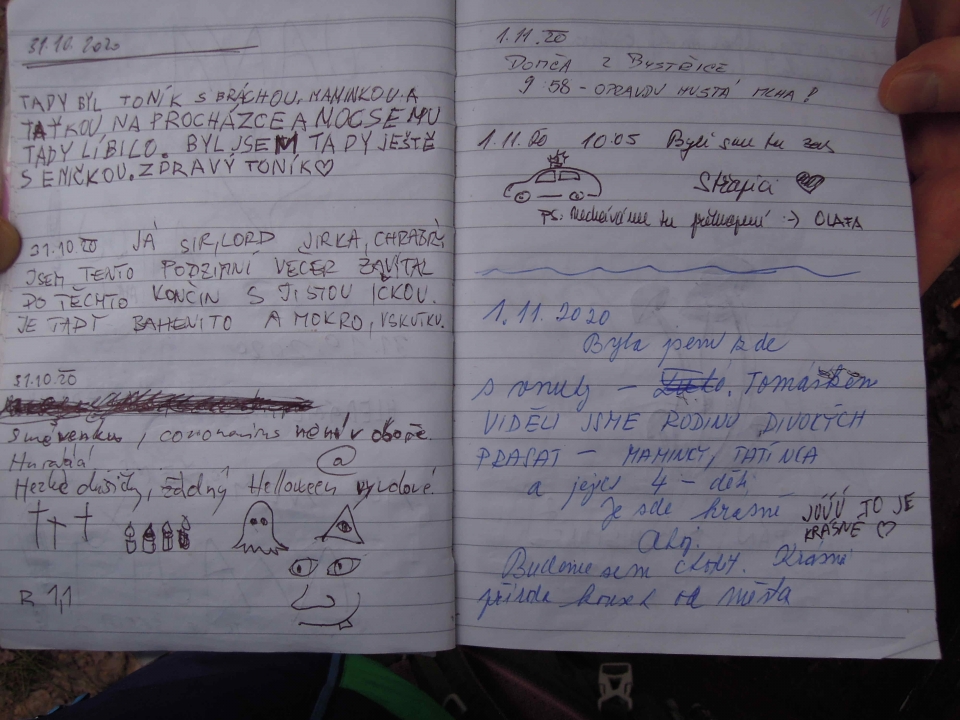 31.10.2020
TADY BYL TONÍK S BRÁCHOU, MAMINKOU A
TAŤKOU NA PROCHÁZCE A MOC SE MU
TADY LÍBILO. BYL JSEM TADY JEŠTĚ
S ENIČKOU. ZDRAVÝ TONÍK♡
31.10.20 JÁ SIR, LORD JIRKA, CHRABRÝ
JSEM TENTO PODZIMNÍ VEČER ZAVÍTAL
DO TĚCHTO KONČIN S JISTOU ÍČKOU.
JE TADY BAHENITO A MOKRO, VSKUTKU.
31.10.20
Sme venku, coronavirus není v oboře.
Hurááá
@
Hezké dušičky, žádný Helloween vydové.
R 1,1
16
1.11.20
DOMČA Z BYSTŘICE
9:58 - OPRAVDU HUSTÁ MLHA!
1.11.20 10:05 Byli sme tu zas
Střapáci ♥
PS: Necháváme tu překvapení :-) OLAFA
1.11.2020
Byla jsem zde
s vnuky - Tomáškem
VIDĚLI JSME RODINU DIVOKÝCH
PRASAT - MAMINKY, TATÍNCA
a jejich 4 - děti
Je zde krásně JÚÚÚ TO JE
KRÁSNÉ ♡
Ahoj.
Budeme sem chodit. Krásná
příroda kousek od města